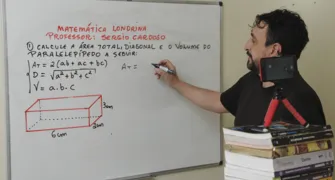 MATEMÁTICA LONDRINA
PROFESSOR: SERGIO CARDOSO
① CALCULE A ÁREA TOTAL, DIAGONAL E O VOLUME DO
PARALELEPÍPEDO A SEGUIR:
AT = 2(ab + ac + bc)
AT =
D = √a² + b² + c²
V = a.b.c
3cm
2cm
6cm